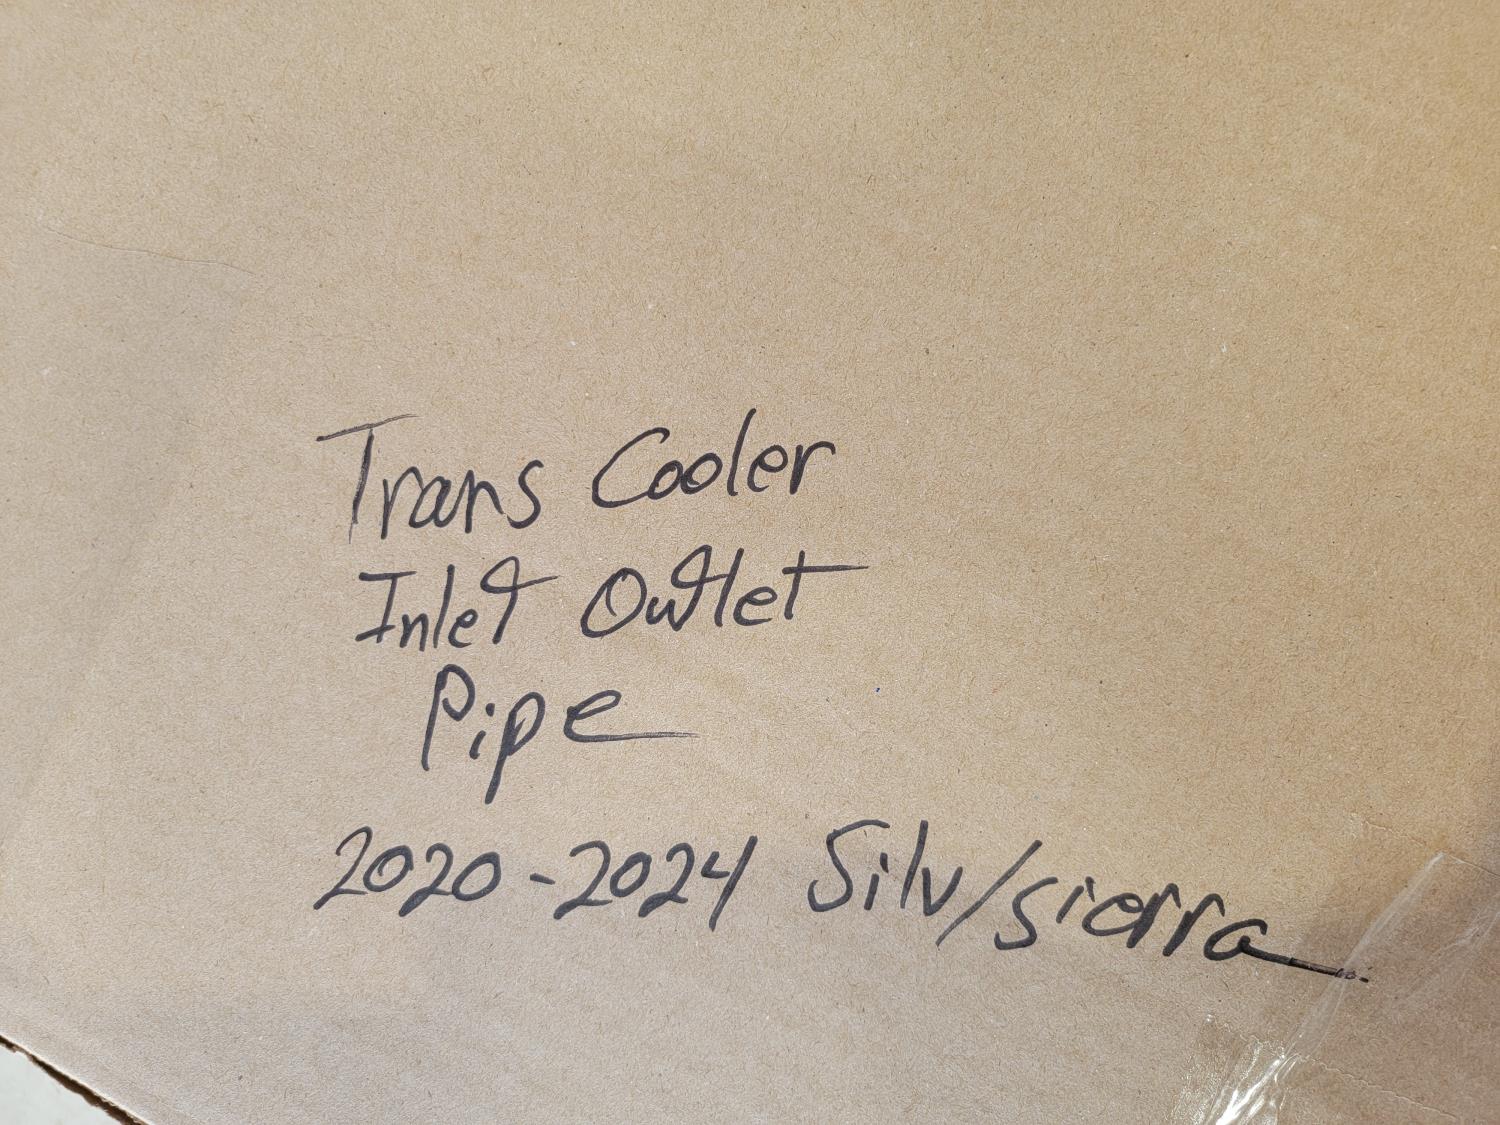 Trans Cooler
Inlet Outlet
Pipe
2020-2024 Silv/sierra